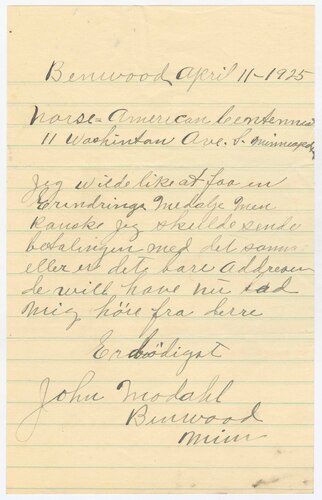 Benwood April 11-1925
Norse-American Centennial
11 Washinton Ave. S. Minneapolis
Jeg vilde like at faa en
Erindrings Medalje Men
Kanske jeg skulde sende
betalingen med det samme
eller er det bare Addressen
de vill have nu lad
Mig höre fra Derre
Erbödigst
John Modahl
Benwood
Minn